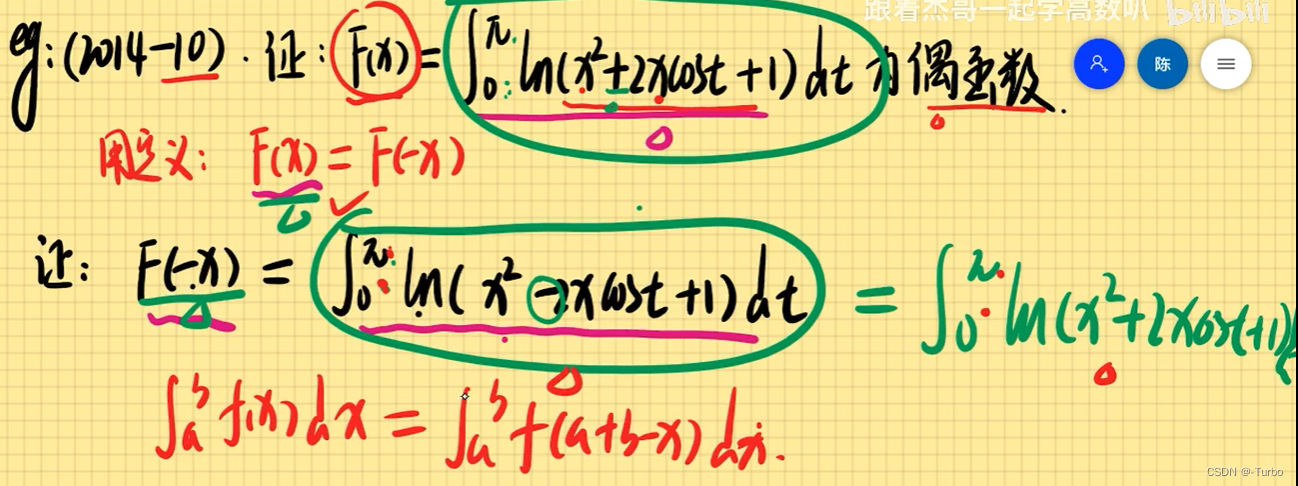 跟着杰哥一起学高数叭 bilibili
eg: (2014-10). 证: F(x) = ∫₀^π ln(x²+2xcost+1)dt 为偶函数.
陈
用定义: F(x) = F(-x)
证: F(-x) = ∫₀^π ln(x²-2xcost+1)dt = ∫₀^π ln(x²+2xcost+1)
∫ₐᵇ f(x)dx = ∫ₐᵇ f(a+b-x)dx.
CSDN @-Turbo